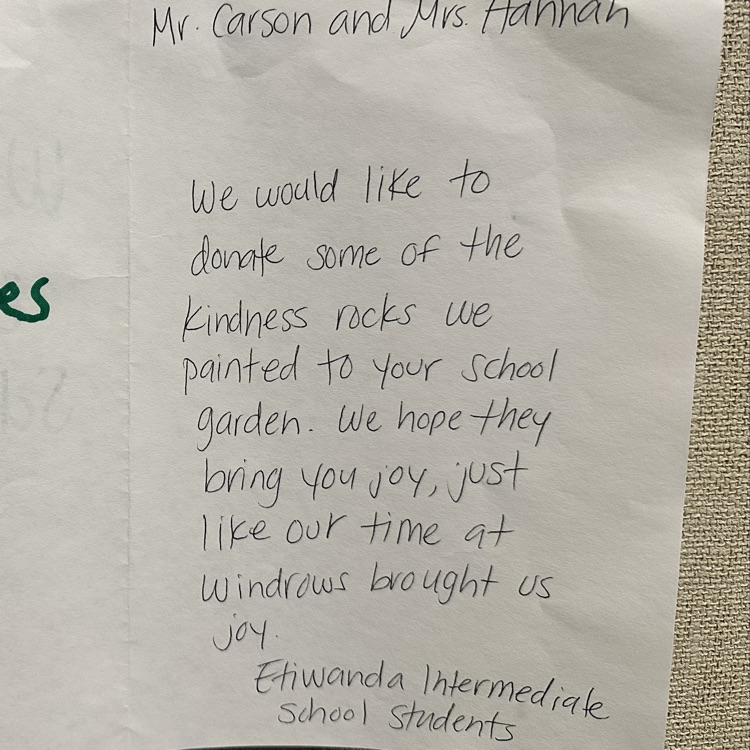 Mr. Carson and Mrs. Hannah
We would like to
donate some of the
kindness rocks we
painted to your school
garden. We hope they
bring you joy, just
like our time at
Windrows brought us
joy.
Etiwanda Intermediate
School Students
es